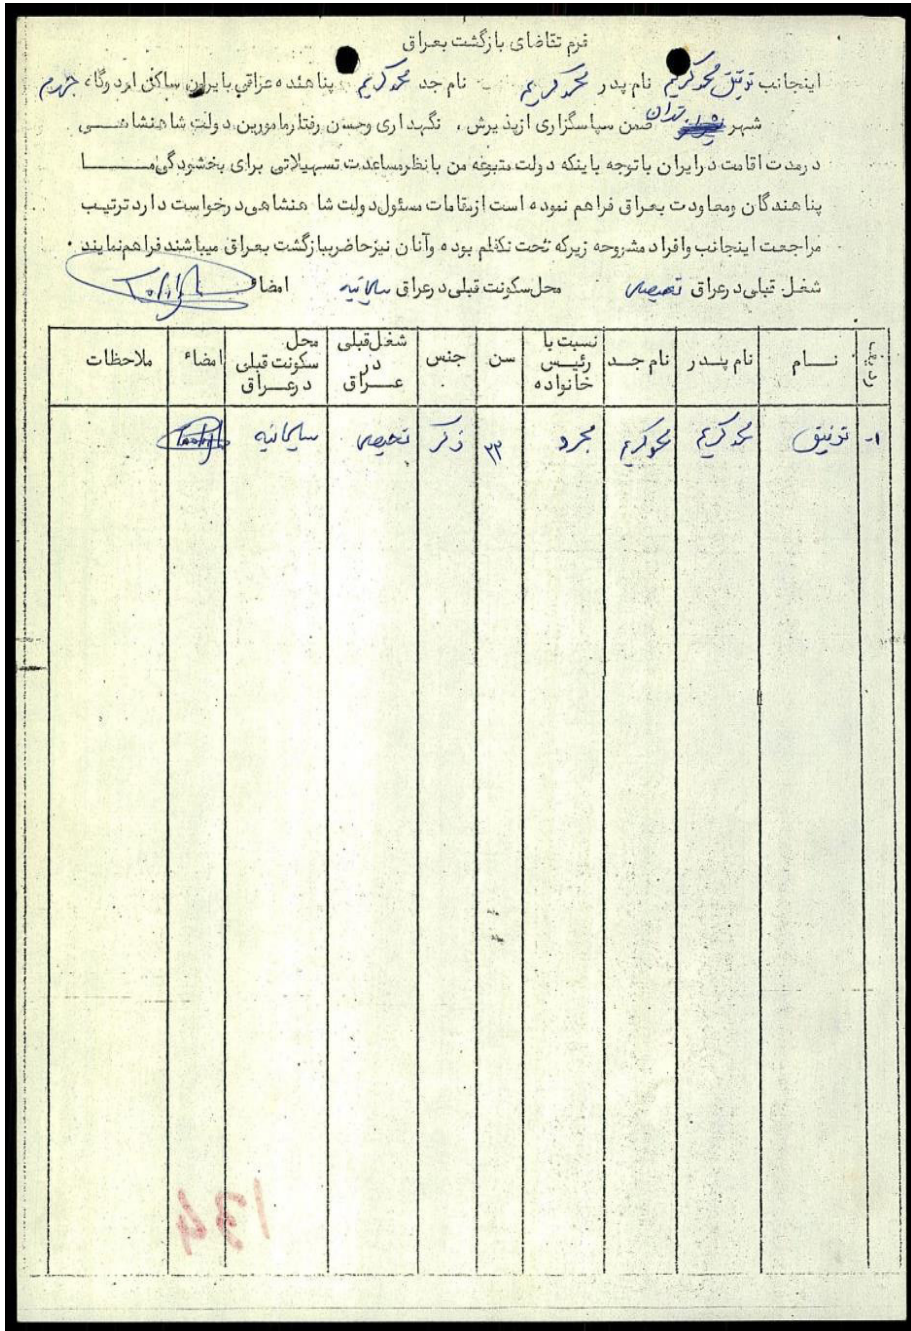 فرم تقاضای بازگشت بعراق
اینجانب توفیق محمد کریم نام پدر محمد کریم نام جد محمد کریم پناهنده عراقی بایران ساکن اردوگاه جهرم
شهر تهران ضمن سپاسگزاری از پذیرش ، نگهداری وحسن رفتار مامورین دولت شاهنشاهی
در مدت اقامت در ایران با توجه باینکه دولت متبوعه من بانظر مساعدت تسهیلاتی برای بخشودگی ما
پناهندگان ومعاودت بعراق فراهم نموده است از مقامات مسئول دولت شاهنشاهی درخواست دارد ترتیب
مراجعت اینجانب وافراد مشروحه زیر که تحت تکفلم بوده وآنان نیز حاضر ببازگشت بعراق میباشند فراهم نمایند .
شغل قبلی در عراق محل سکونت قبلی در عراق سلیمانیه امضاء
ردیف نام نام پدر نام جد نسبت با رئیس خانواده سن جنس شغل قبلی در عراق محل سکونت قبلی در عراق امضاء ملاحظات
۱- توفیق محمد کریم محمد کریم مجرد ۳۳ ذکر سلیمانیه
134